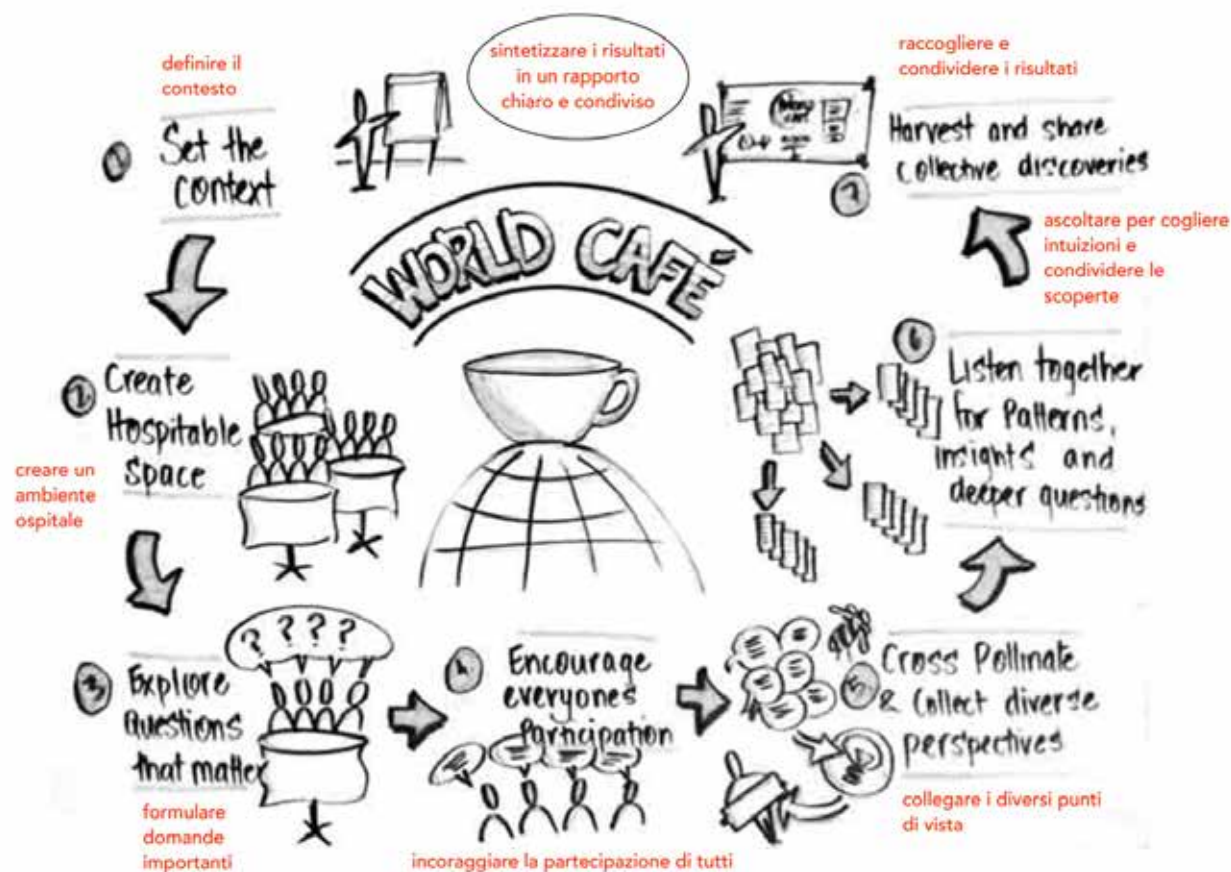 definire il
contesto
1
Set the
context
sintetizzare i risultati
in un rapporto
chiaro e condiviso
raccogliere e
condividere i risultati
7
Harvest and share
collective discoveries
WORLD CAFÉ
ascoltare per cogliere
intuizioni e
condividere le
scoperte
2
Create
Hospitable
Space
creare un
ambiente
ospitale
6
Listen together
for Patterns,
insights and
deeper questions
? ? ? ?
3
Explore
questions
that matter
formulare
domande
importanti
4
Encourage
everyones
Participation
incoraggiare la partecipazione di tutti
5
Cross Pollinate
& Collect diverse
perspectives
collegare i diversi punti
di vista